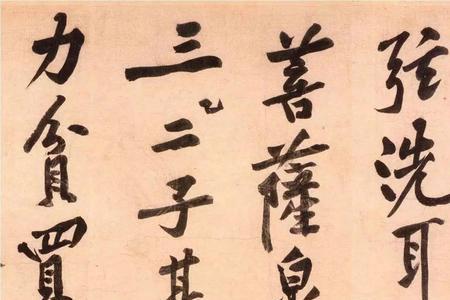 弦洗耳
菩薩泉
三二子甚
力貧買